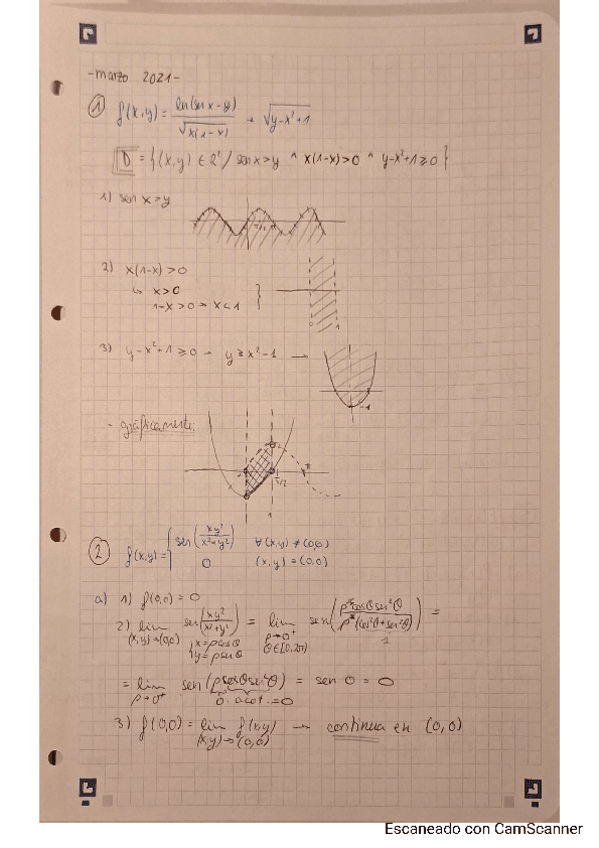 -marzo 2021-
① f(x,y) = ln(sen x - y) / √x(1-x) + √y-x²+1
D = {(x,y) ∈ R² / sen x > y ^ x(1-x) > 0 ^ y-x²+1 ≥ 0}
1) sen x > y
π/2
2) x(1-x) > 0
↳ x > 0
1-x > 0 → x < 1
0 1
3) y-x²+1 ≥ 0 → y ≥ x²-1 →
-1
- gráficamente:
π/2 π
1
② f(x,y) = { sen(xy²/x²+y²) ∀(x,y) ≠ (0,0)
0 (x,y) = (0,0)
a) 1) f(0,0) = 0
2) lim (x,y)→(0,0) sen(xy²/x²+y²) = lim ρ→0⁺ θ∈[0,2π) sen(ρ³cosθsen²θ/ρ²(cos²θ+sen²θ)) =
{x=ρcosθ
y=ρsenθ
1
= lim ρ→0⁺ sen(ρcosθsen²θ) = sen 0 = 0
0 · acot. = 0
3) f(0,0) = lim (x,y)→(0,0) f(x,y) → continua en (0,0)
Escaneado con CamScanner